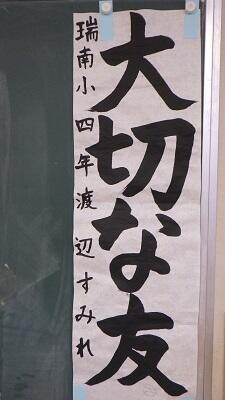 大切な友
瑞南小四年渡辺すみれ